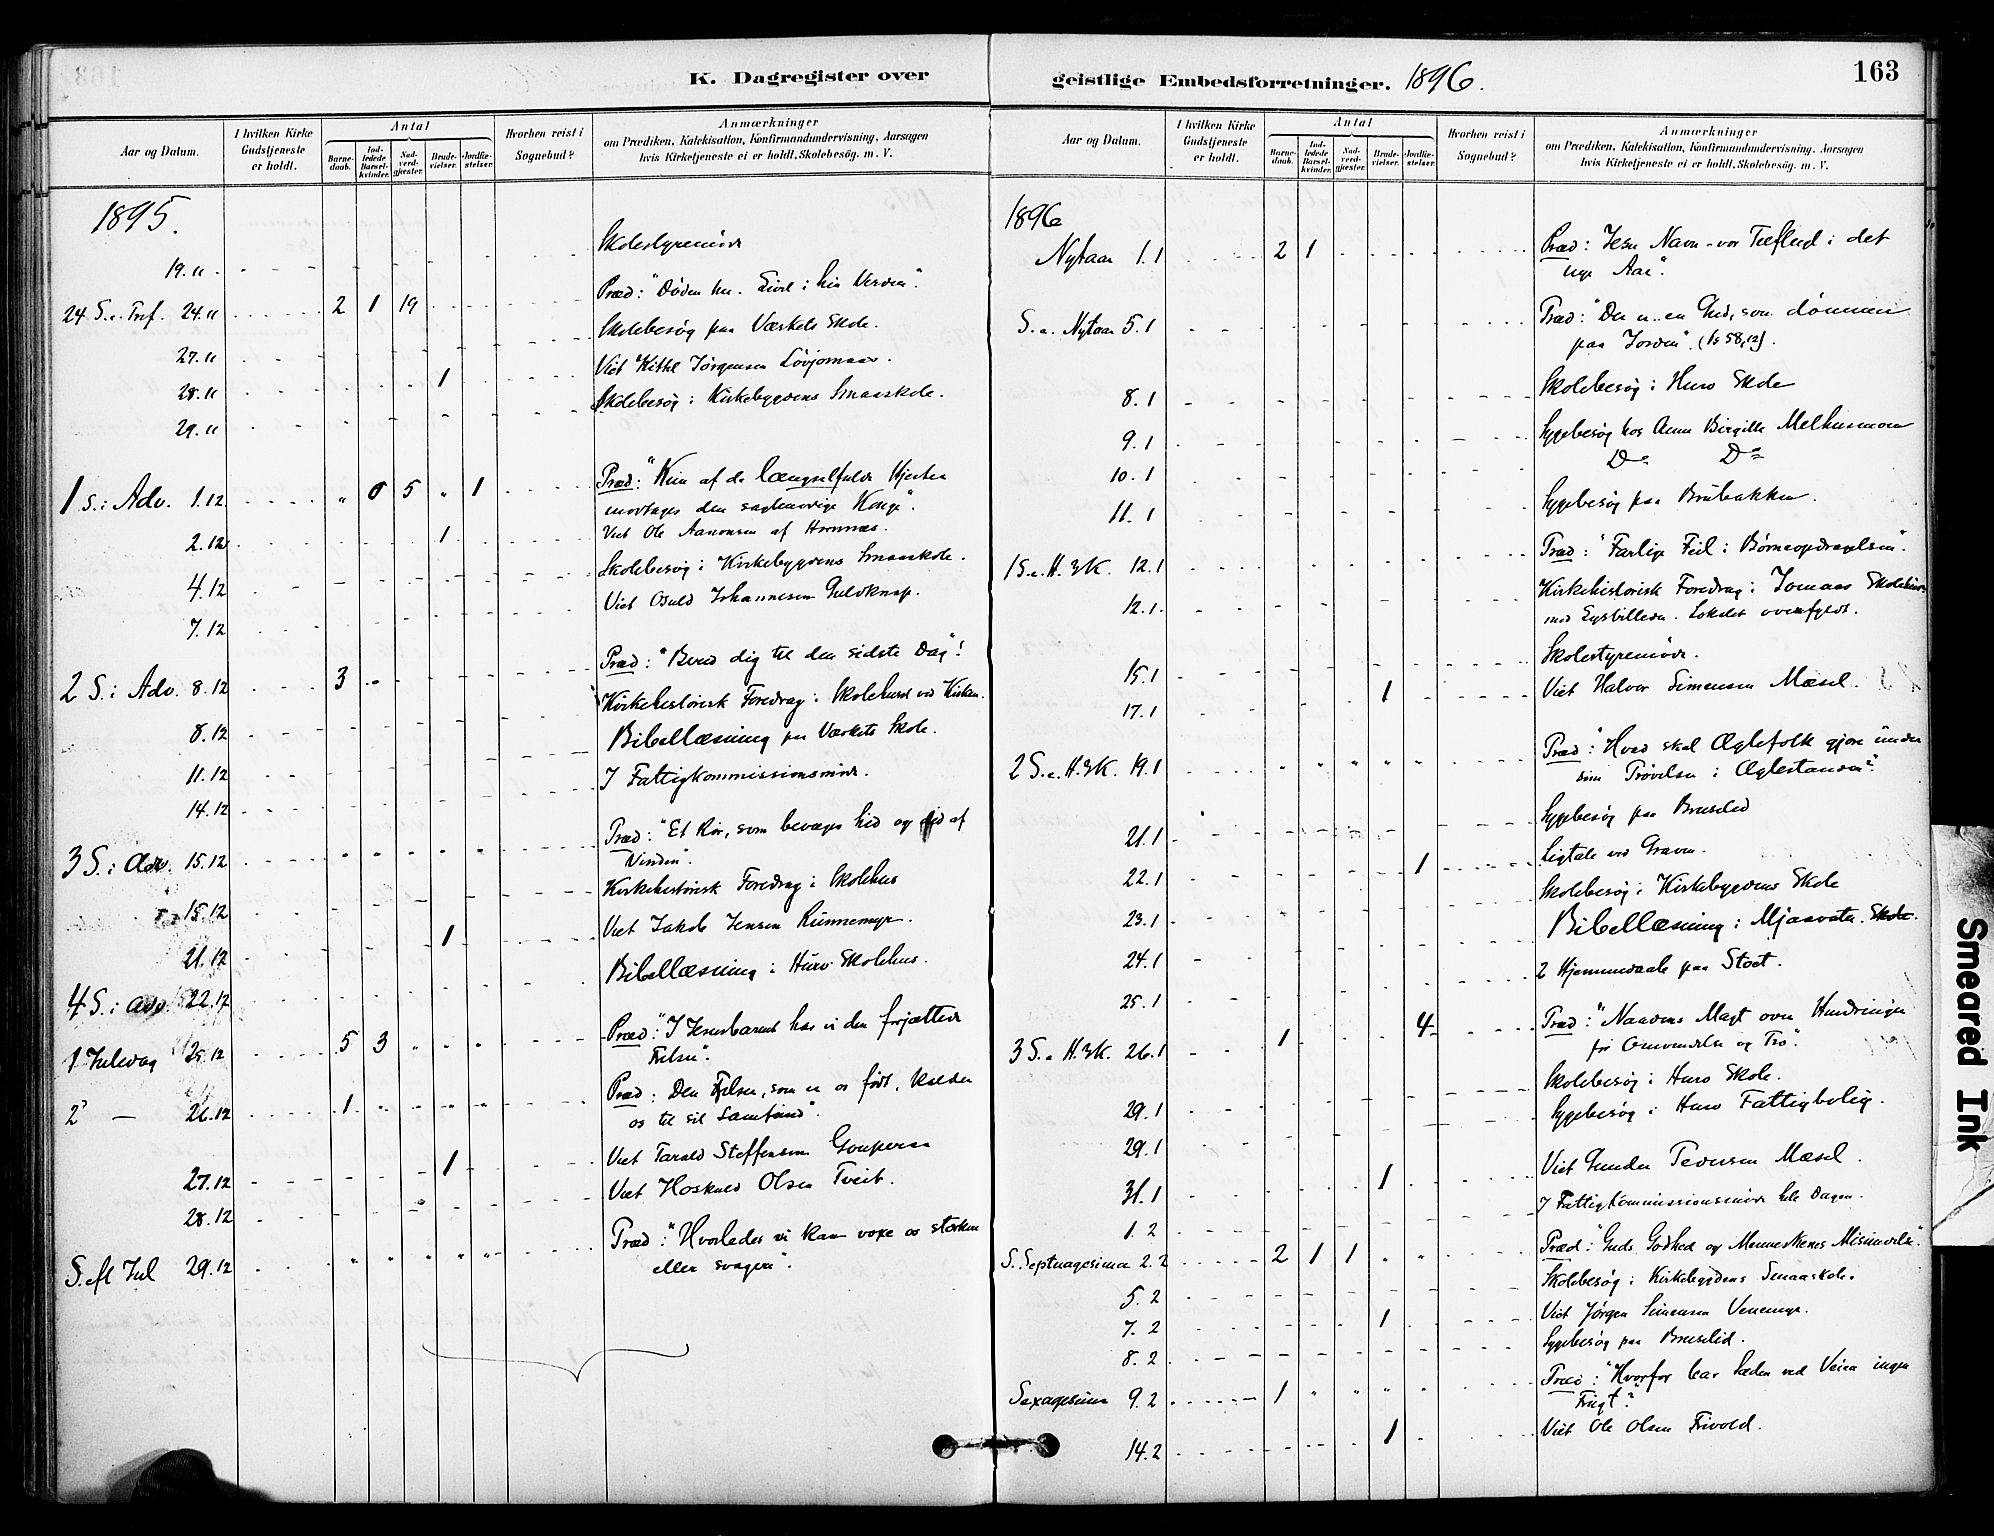 K. Dagregister over
Aar og Datum.
I hvilken Kirke Gudstjeneste er holdt.
Antal
Barnedaab.
Indledede Barselkvinder.
Nadverdgjæster.
Brudevielser.
Jordfæstelser.
Hvorhen reist i Sognebud?
Anmærkninger
om Prædiken, Katekisation, Konfirmandundervisning, Aarsagen
hvis Kirketjeneste ei er holdt, Skolebesøg. m. V.
1895.
19.11 Skolestyremöde
24 S. e. Tref. 24.11 2 1 19 Præd: "Döden her. Livet i hin Verden".
27.11 Skolebesøg paa Værkets Skole.
28.11 1 Viet Kittil Jörgensen
29.11 Skolebesøg i Kirkebygdens Smaaskole.
1 S. i Adv. 1.12 " 0 5 " 1 Præd: "Kun af de længselfulde Hjerter
modtages den sagtmodige Konge".
2.12 1 Viet Ole Aanonsen af Hornnæs.
4.12 Skolebesøg i Kirkebygdens Smaaskole.
7.12 Viet Osuld Johannesen Guldknap.
2 S. i Adv. 8.12 3 Præd: "Bered dig til den sidste Dag"!
8.12 Kirkehistorisk Foredrag i Skolehuset ved Kirken.
11.12 Bibellæsning paa Værkets Skole.
14.12 I Fattigkommissionsmöde.
3 S. i Adv. 15.12 Præd: "Et Rör, som bevæges hid og did af
Vinden".
15.12 Kirkehistorisk Foredrag i Skolehus
21.12 1 Viet Jakob Jensen Runnemyr.
4 S. i Adv. 22.12 Bibellæsning i Huvo Skolehus.
1 Juledag 25.12 5 3 " " " Præd: "I Jesusbarnet har vi den forjættede
Frelser".
2' — 26.12 1 " " " " Præd: Den Frelser, som er os född, kalder
os til sit Samfund".
27.12 1 Viet Tarald Steffensen
28.12 Viet Hoskuld Olsen Tveit.
S. efl Jul 29.12 Præd: "Hvorledes vi kan voxe os stærken
eller svagen".
geistlige Embedsforretninger. 1896.
163
Aar og Datum.
I hvilken Kirke Gudstjeneste er holdt.
Antal
Barnedaab.
Indledede Barselkvinder.
Nadverdgjæster.
Brudevielser.
Jordfæstelser.
Hvorhen reist i Sognebud?
Anmærkninger
om Prædiken, Katekisation, Konfirmandundervisning, Aarsagen
hvis Kirketjeneste ei er holdt, Skolebesøg. m. V.
1896
Nytaar 1.1 2 1 Præd: Jesu Navn - vor Tilflugt i det
nye Aar".
S. e. Nytaar 5.1 Præd: "Der er en Gud, som dömmer
paa Jorden". (Ps 58,12).
8.1 Skolebesøg i Huvo Skole
9.1 Sygebesøg hos Anne Birgitte Melhusmoen
10.1 Do Do
11.1 Sygebesøg paa Brubakken.
1 S. e. H. 3 K. 12.1 Præd: "Farlige Feil i Børneopdragelsen".
12.1. Kirkehistorisk Foredrag i Jomaas Skolehus
med Lysbilleder. Lokalet overfyldt.
15.1 Skolestyremöde.
17.1 1 Viet Halvor Simensen Mæsel.
2 S. e. H. 3 K. 19.1 " " " " " Præd: "Hvad skal Ægtefolk gjøre under
sine Prövelser i Ægtestanden".
21.1 Sygebesøg paa Bruslid
22.1 1 Ligtale ved Graven.
23.1 Skolebesøg i Kirkebygdens Skole
24.1 Bibellæsning i Mjaavatn Skole.
25.1 2 Hjemmedaab paa Stoet.
3 S. e. H. 3 K. 26.1 1 4 Præd: "Naadens Magt over Hindringer
for Omvendelse og Tro".
29.1 Skolebesøg i Huvo Skole.
29.1 Sygebesøg i Huvo Fattigbolig.
31.1 1 Viet Gunder Pedersen Mæsel.
1.2 I Fattigkommissionsmöde hele Dagen.
S. Septuagesima 2.2 2 1 1 " " Præd: "Guds Godhed og Menneskenes Misundelse".
5.2 Skolebesøg i Kirkebygdens Smaaskole.
7.2 1 Viet Jörgen Simensen Venemyr.
8.2 Sygebesøg paa Bruslid.
Sexagesima 9.2 1 " " " " Præd: "Hvorfor bar Sæden ved Veien ingen
Frugt?"
14.2 1 Viet Ole Olsen Frivold.
Smeared Ink